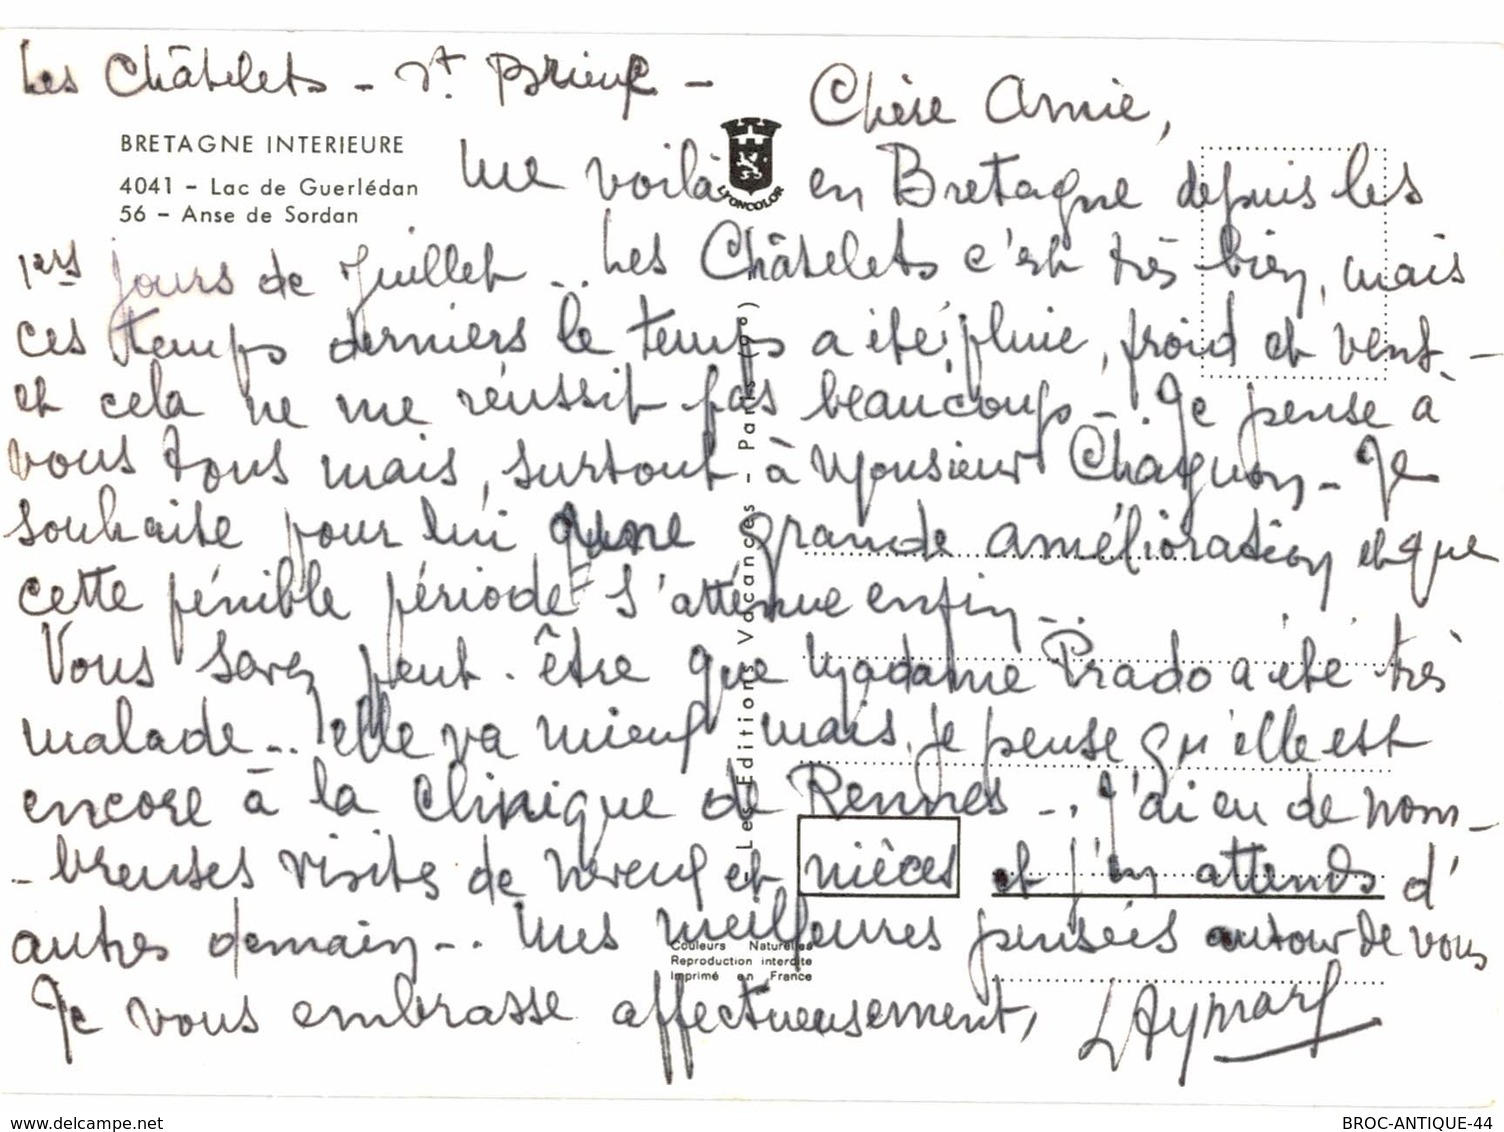 Les Châtelets - St Brieuc -
Chère Amie,
BRETAGNE INTERIEURE
4041 - Lac de Guerlédan
56 - Anse de Sordan
LYONCOLOR
me voilà en Bretagne depuis les
1ers jours de Juillet... Les Châtelets c'est très bien, mais
ces temps derniers le temps a été, pluie, froid et vent. -
et cela ne me réussit pas beaucoup -. Je pense à
vous tous mais, surtout à Monsieur Chagnon - Je
souhaite pour lui qu'une grande amélioration et que
cette pénible période s'atténue enfin -..
Vous savez peut-être que Madame Prado a été très
malade -.. elle va mieux mais, je pense qu'elle est
encore à la Clinique de Rennes -.. J'ai eu de nom-
- breuses visites de neveux et nièces et j'en attends d'
autres demain -.. Mes meilleures pensées autour de vous
Je vous embrasse affectueusement,
L Aymard
- Les Editions Vacances - Paris
Couleurs Naturelles
Reproduction interdite
Imprimé en France
www.delcampe.net
BROC-ANTIQUE-44